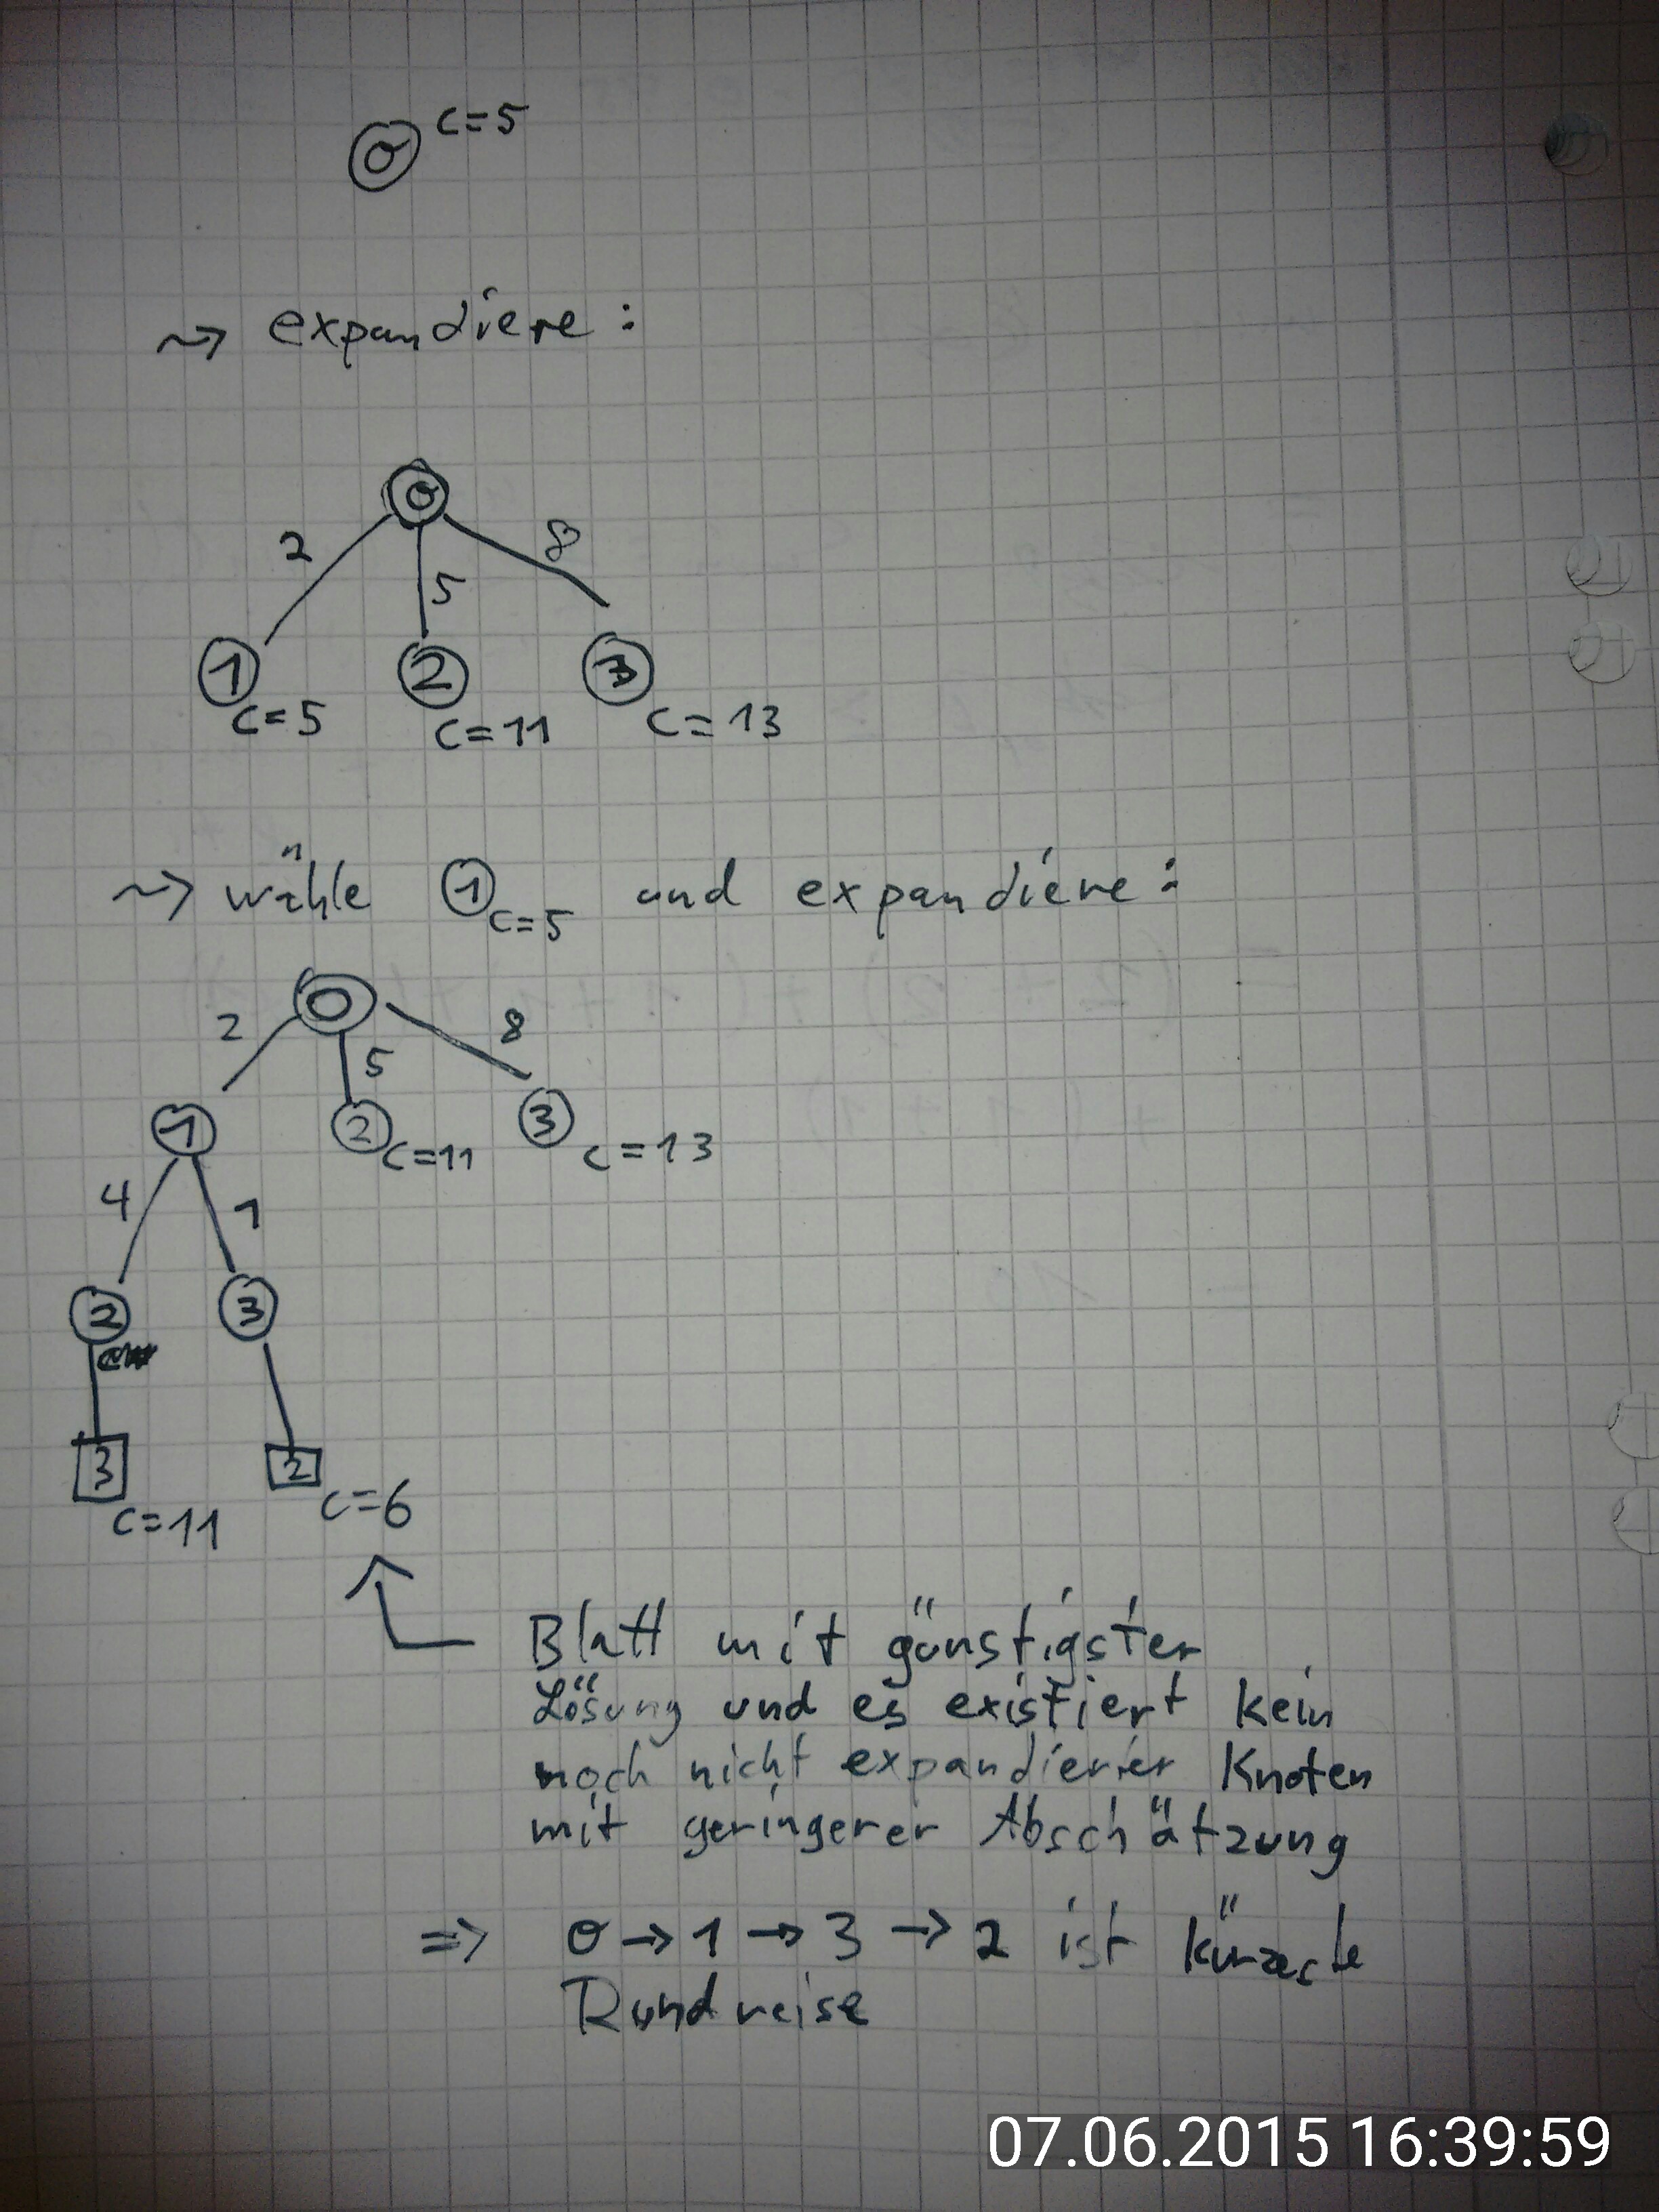 0 c=5
~> expandiere:
0
2 5 8
1 2 3
c=5 c=11 c=13
~> wähle 1 c=5 und expandiere:
0
2 5 8
1 2 c=11 3 c=13
4 1
2 3
3 2
c=11 c=6
Blatt mit günstigster
Lösung und es existiert kein
noch nicht expandierter Knoten
mit geringerer Abschätzung
=> 0 → 1 → 3 → 2 ist kürzeste
Rundreise
07.06.2015 16:39:59